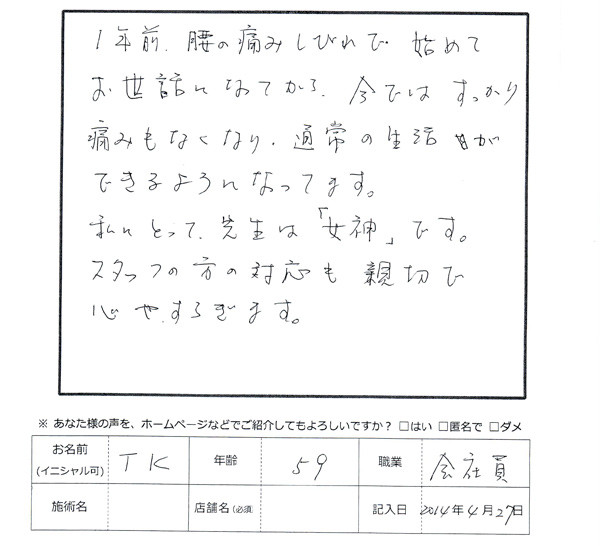 1年前、腰の痛みしびれで 始めて
お世話になてから、今ではすっかり
痛みもなくなり、通常の生活が
できるようになってます。
私にとって、先生は「女神」です。
スタッフの方の対応も親切で
心やすらぎます。
※ あなた様の声を、ホームページなどでご紹介してもよろしいですか? □はい □匿名で □ダメ
お名前 (イニシャル可) TK 年齢 59 職業 会社員
施術名 店舗名(必須) 記入日 2014年4月27日